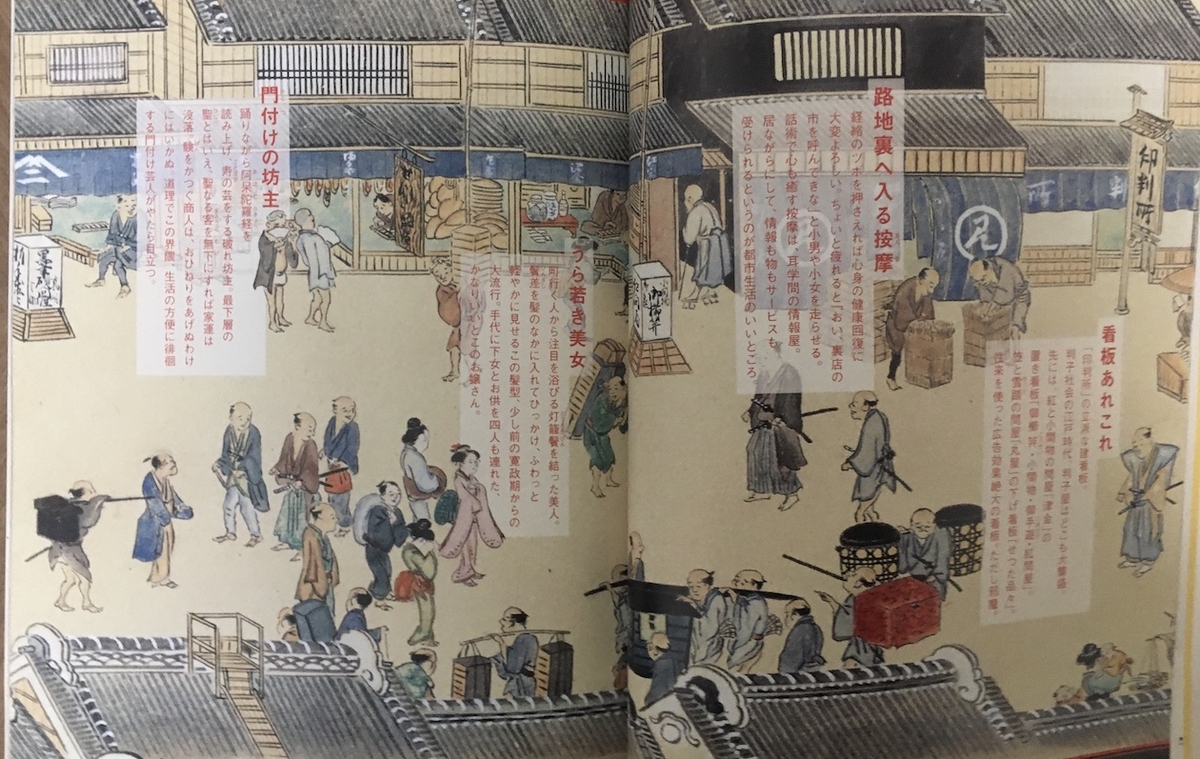 看板あれこれ
「印判所」の立派な建看板。
判子社会の江戸時代、判子屋はどこも大繁盛。
先には、紅と小間物の問屋「津金」の
置き看板「御櫛笄・小間物・御手遊・紅問屋」。
笠と雪踏の問屋「丸屋」の下げ看板「せつた品々」。
往来を使った広告効果絶大の看板。ただし邪魔。
路地裏へ入る按摩
経絡のツボを押さえれば心身の健康回復に
大変よろしい。ちょいと疲れると「おい、裏店の
市を呼んできな」と小男や小女を走らせる。
話術で心も癒す按摩は、耳学問の情報屋。
居ながらにして、情報も物もサービスも
受けられるというのが都市生活のいいところ。
うら若き美女
町行く人から注目を浴びる灯籠鬢を結った美人。
鬢差を髪のなかに入れてひっかけ、ふわっと
軽やかに見せるこの髪型、少し前の寛政期からの
大流行。手代に下女とお供を四人も連れた、
かなりいいとこのお嬢さん。
門付けの坊主
踊りながら阿呆陀羅経を
読み上げ、寿の芸をする破れ坊主。最下層の
聖とはいえ、聖なる客を無下にすれば家運は
没落。験をかつぐ商人は、おひねりをあげぬわけ
にはいかぬ。道理でこの界隈、生活の方便に徘徊
する門付け芸人がやたら目立つ。
印判所